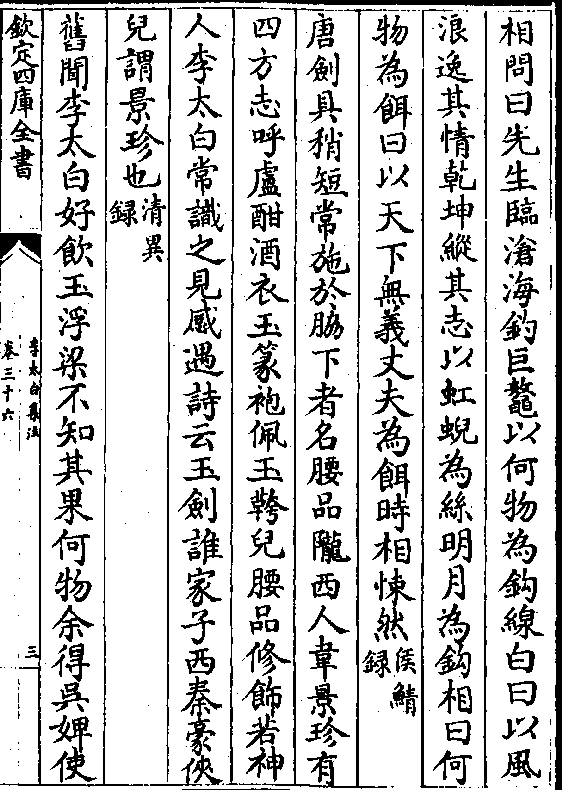 相問曰先生臨滄海釣巨鼇以何物為鈎線白曰以風
浪逸其情乾坤縱其志以虹蜺為絲明月為鈎相曰何
物為餌曰以天下無義丈夫為餌時相悚然侯鯖録
唐劍具稍短常施於脇下者名腰品隴西人韋景珍有
四方志呼盧酣酒衣玉篆袍佩玉鞾兒腰品修飾若神
人李太白常識之見感遇詩云玉劍誰家子西秦豪俠
兒謂景珍也清異録
舊聞李太白好飲玉浮梁不知其果何物余得吳婢使
欽定四庫全書
李太白集注
卷三十六
三